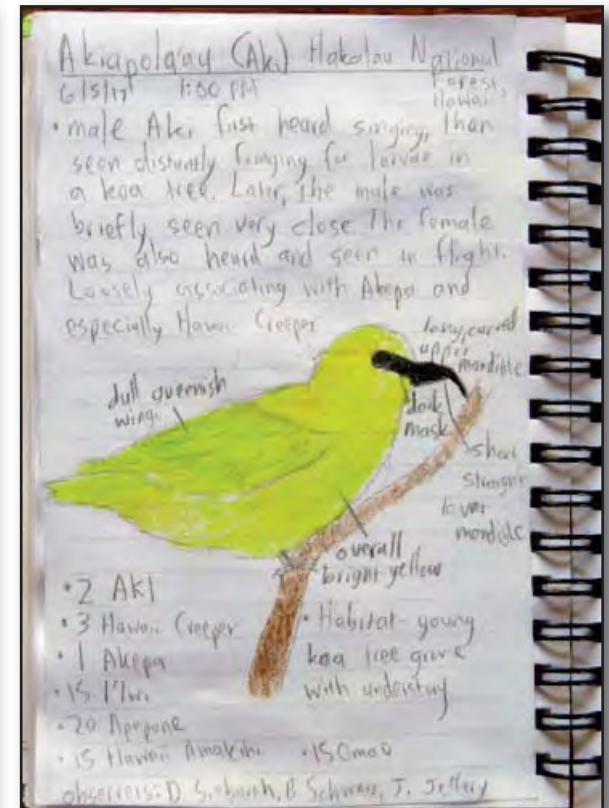 Akiapola'au (Aki) Hakalau National
Forest,
Hawaii
6/5/17 1:00 PM
• male Aki first heard singing, then
seen distantly foraging for larvae in
a koa tree. Later, the male was
briefly seen very close. The female
was also heard and seen in flight.
Loosely associating with Akepa and
especially Hawaii Creeper
long, curved
upper
mandible
dull greenish
wings
dark
mask
short
straight
lower
mandible
overall
bright yellow
• 2 AKI
• 3 Hawaii Creeper
• 1 Akepa
• 15 I'iwi
• 20 Apapane
• 15 Hawaii Amakihi
• 15 Omao
• Habitat - young
koa tree grove
with understory
observers: D. B. Schwarz, J. Jeffery